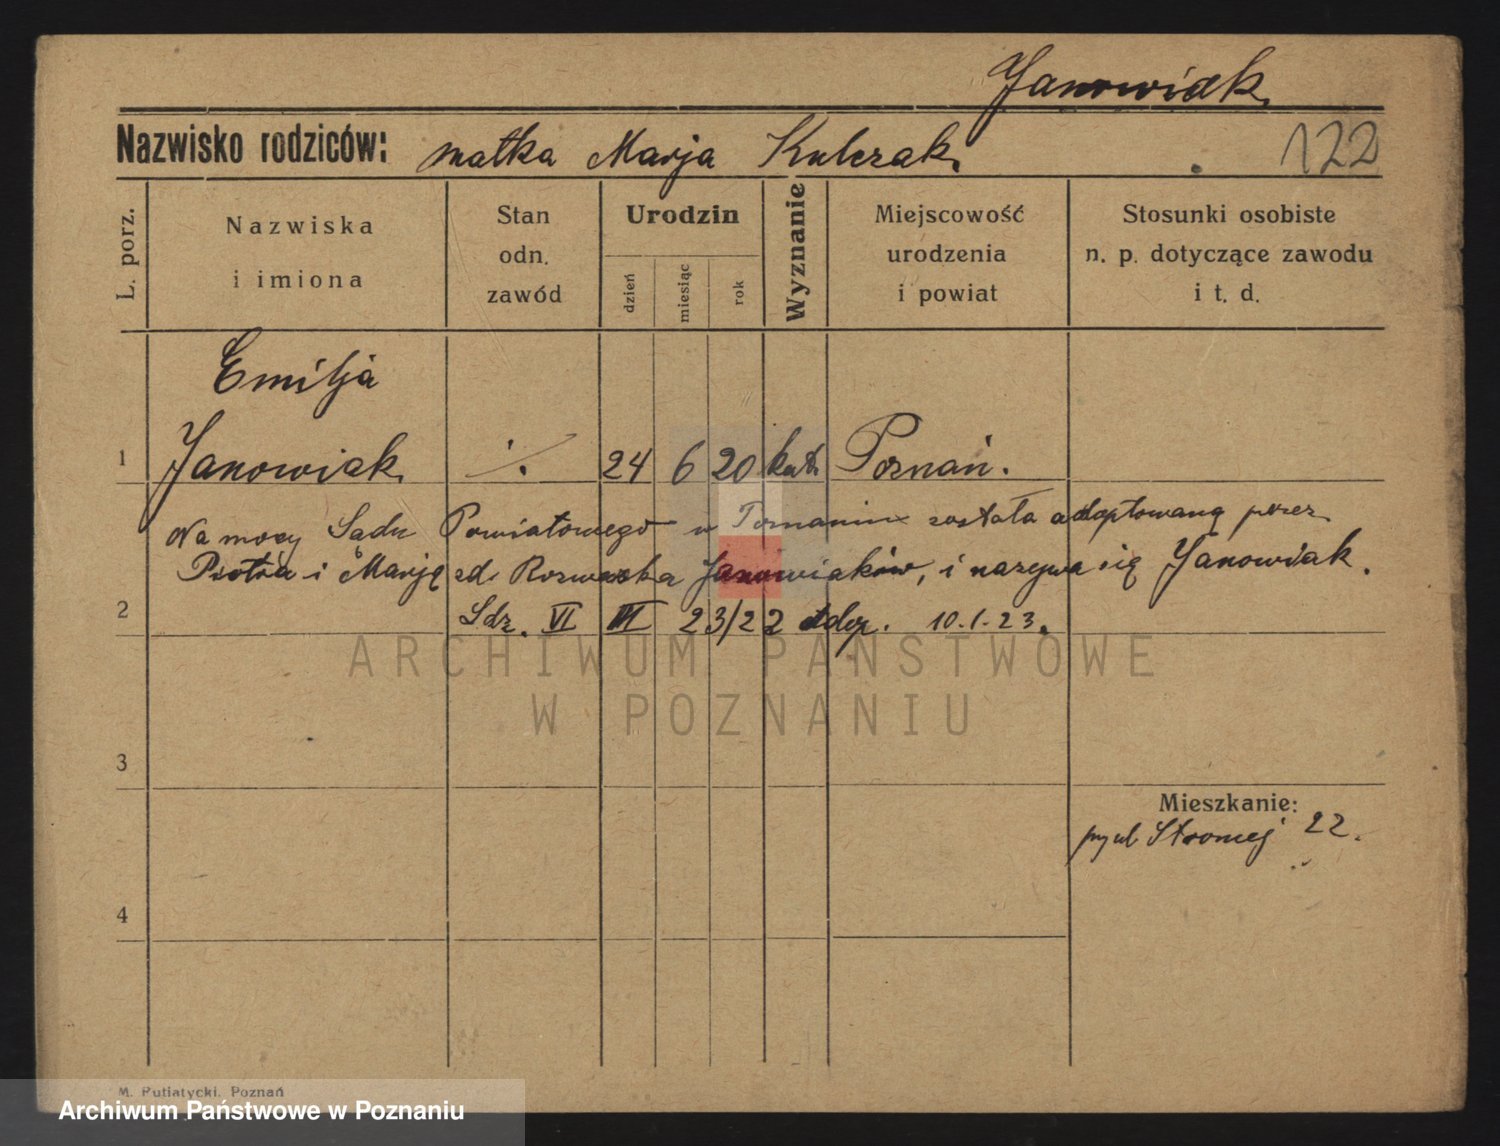 Janowiak
Nazwisko rodziców: matka Marja Kulczak.
122
L. porz.
Nazwiska
i imiona
Stan
odn.
zawód
Urodzin
dzień
miesiąc
rok
Wyznanie
Miejscowość
urodzenia
i powiat
Stosunki osobiste
n. p. dotyczące zawodu
i t. d.
Emilja
1 Janowiak ·/. 24 6 20 kat. Poznań.
Na mocy Sądu Powiatowego w Poznaniu została adoptowaną przez
Piotra i Marję zd. Janowiaków, i nazywa się Janowiak.
2 Sdz. VI VI 23/22 adop. 10.1.23.
ARCHIWUM PAŃSTWOWE
W POZNANIU
3
Mieszkanie:
przy ul Stromej 22.
4
M. Putiatycki, Poznań
Archiwum Państwowe w Poznaniu